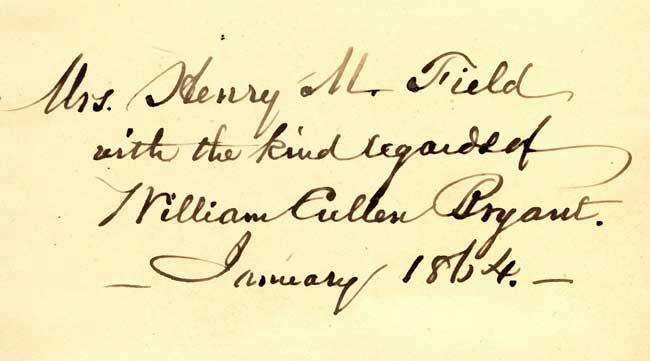 Mrs. Henry M. Field
with the kind regards of
William Cullen Bryant.
— January 1864. —